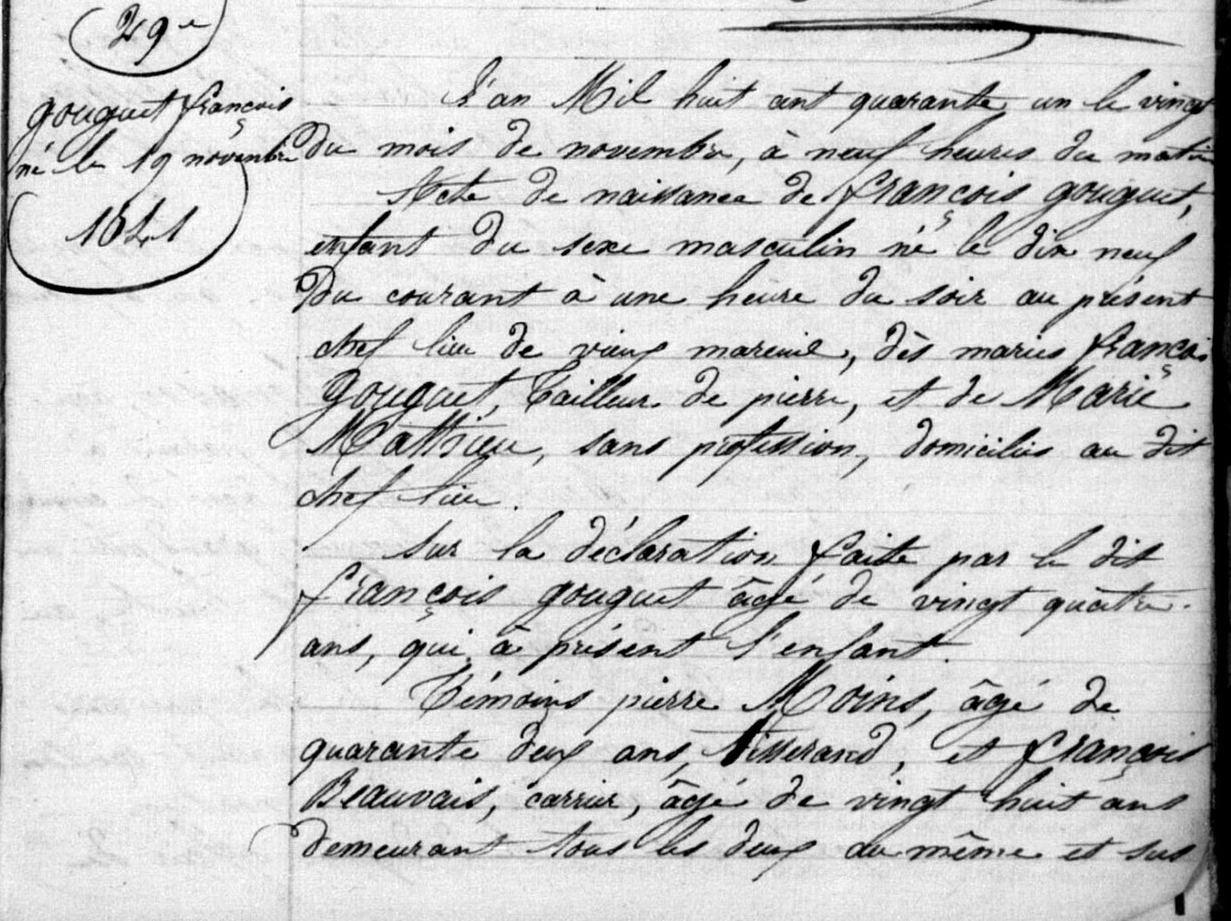 29e
gouguet françois
né le 19 novembre
1841
L'an Mil huit cent quarante un le vingt
du mois de novembre, à neuf heures du matin
Acte de naissance de françois gouguet,
enfant du sexe masculin né le dix neuf
du courant à une heure du soir au présent
chef lieu de vieux mareuil, dès maries françois
Gouguet, tailleur de pierre, et de Marie
Matthieu, sans profession, domiciliés au dit
chef lieu.
Sur la déclaration faite par le dit
françois gouguet âgé de vingt quatre
ans, qui à présent l'enfant.
Témoins pierre Moins, âgé de
quarante deux ans, tisserand, et françois
Beauvais, carrier, âgé de vingt huit ans
demeurant tous les deux au même et sus